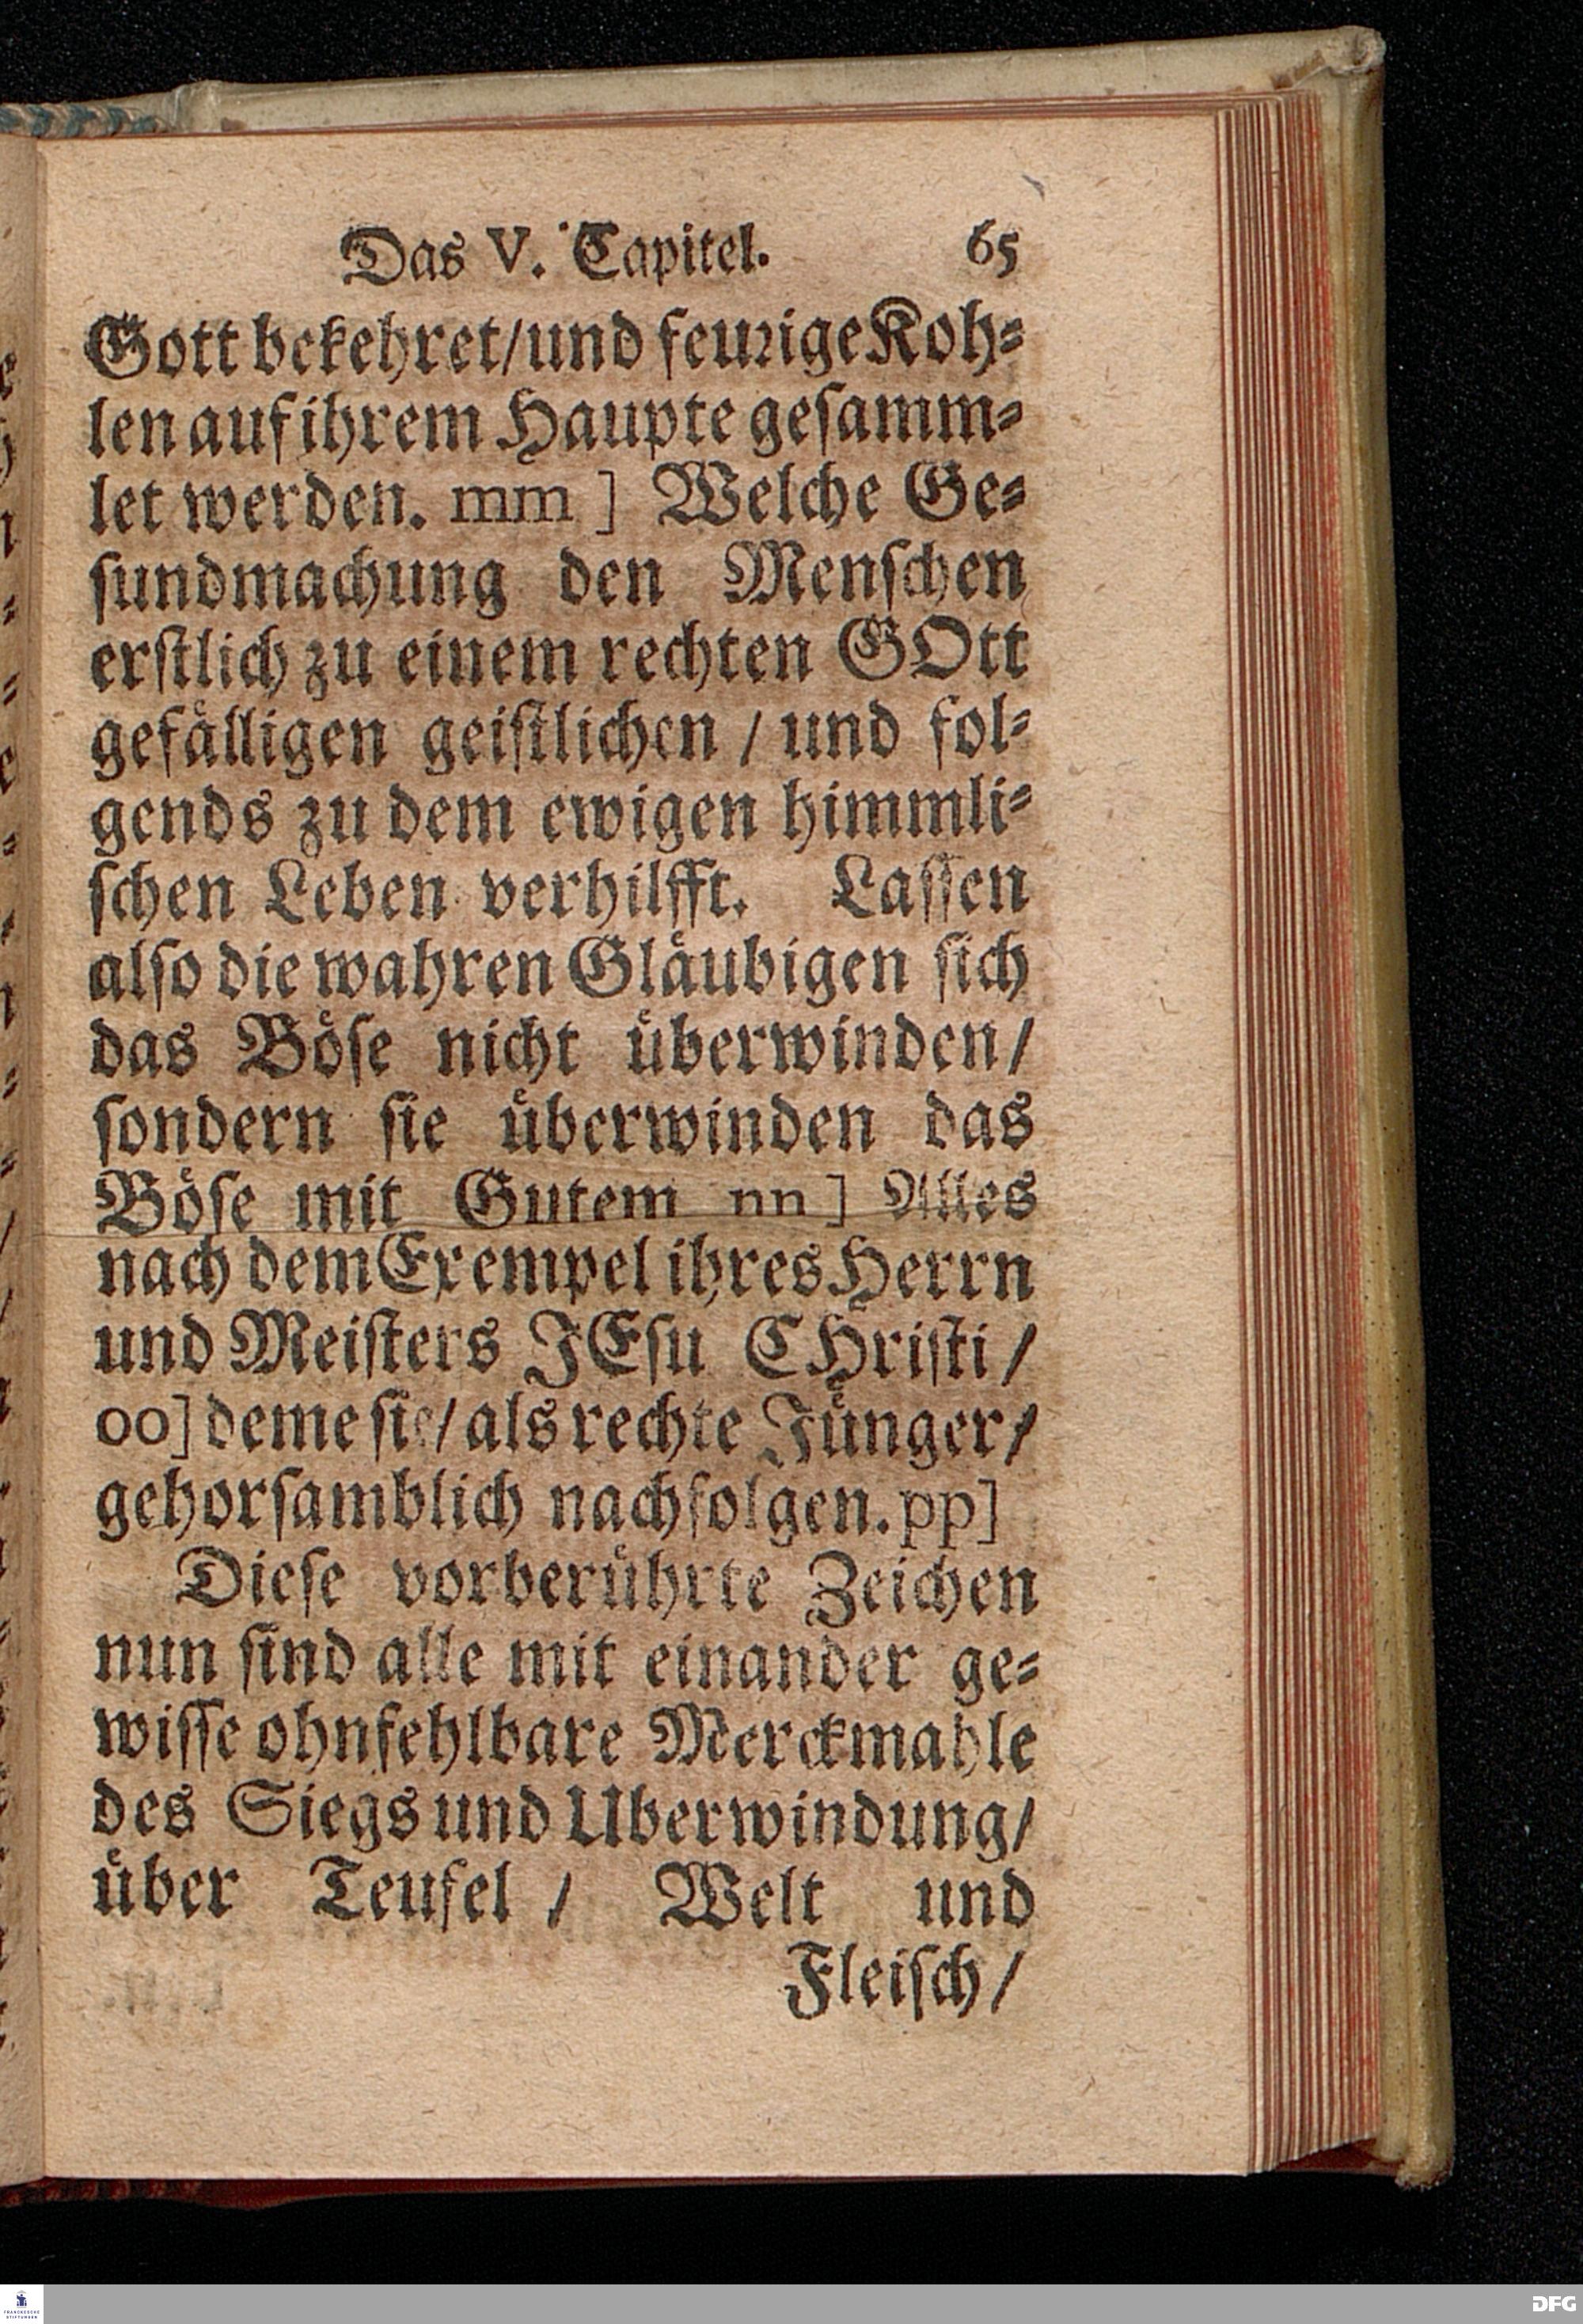 Das V. Capitel. 65
Gott bekehret/und feurige Koh-
len auf ihrem Haupte gesamm-
let werden. mm] Welche Ge-
sundmachung den Menschen
erstlich zu einem rechten GOtt
gefälligen geistlichen / und fol-
gends zu dem ewigen himmli-
schen Leben verhilfft. Lassen
also die wahren Gläubigen sich
das Böse nicht überwinden/
sondern sie überwinden das
Böse mit Gutem nn] Alles
nach dem Exempel ihres Herrn
und Meisters JEsu CHristi/
oo] deme sie/ als rechte Jünger/
gehorsamblich nachfolgen. pp]
Diese vorberührte Zeichen
nun sind alle mit einander ge-
wisse ohnfehlbare Merckmahle
des Siegs und Uberwindung/
über Teufel / Welt und
Fleisch/
FRANCKESCHE
STIFTUNGEN
DFG